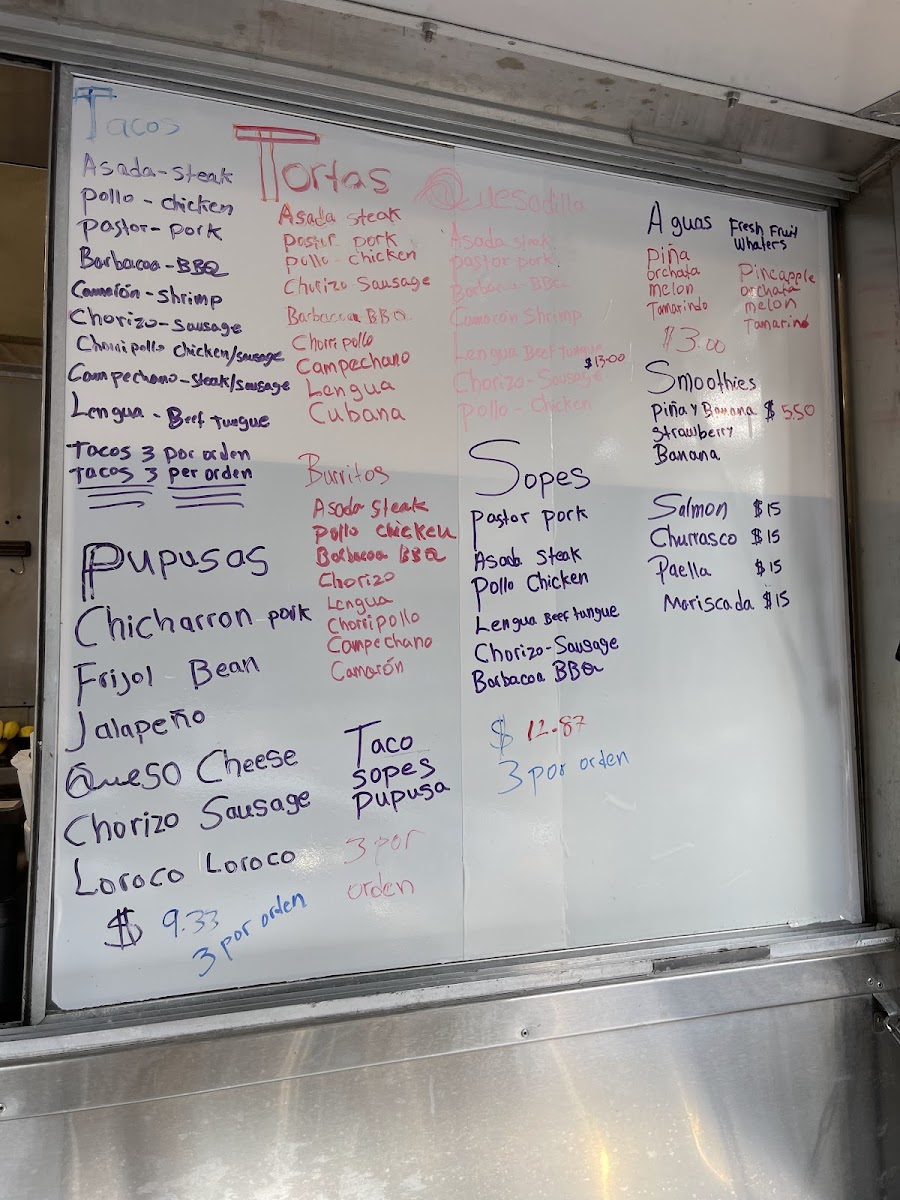 Tacos
Asada-steak
pollo - chicken
pastor- pork
Barbacoa-BBQ
Camarón-shrimp
Chorizo-sausage
Chorri pollo chicken/sausage
Campechano-steak/sausage
Lengua - Beef Tungue
Tacos 3 por orden
Tacos 3 per orden
Pupusas
Chicharron pork
Frijol Bean
Jalapeño
Queso Cheese
Chorizo Sausage
Loroco Loroco
$ 9.33
3 por orden
Tortas
Asada steak
pastor pork
pollo - chicken
Chorizo Sausage
Barbacoa BBQ
Chorri pollo
Campechano
Lengua
Cubana
Burritos
Asada steak
pollo chicken
Barbacoa BBQ
Chorizo
Lengua
Chorripollo
Campechano
Camarón
Taco
sopes
pupusa
3 por
orden
Quesadilla
Asada steak
pastor pork
Barbacoa BBQ
Camarón Shrimp
Lengua Beef Tungue
$13.00
Chorizo-Sausage
pollo - Chicken
Sopes
pastor pork
Asada steak
pollo Chicken
Lengua Beef tungue
Chorizo-Sausage
Barbacoa BBQ
$ 12.87
3 por orden
Aguas
Piña
orchata
melon
Tamarindo
Fresh Fruit
Whaters
Pineapple
orchata
melon
Tamarind
$3.00
Smoothies
piña y Banana $ 5.50
strawberry
Banana
Salmon $15
Churrasco $15
Paella $15
Mariscada $15